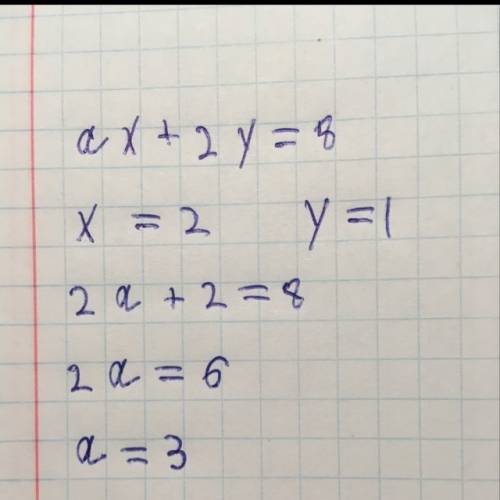 ax + 2y = 8
x = 2 y = 1
2a + 2 = 8
2a = 6
a = 3